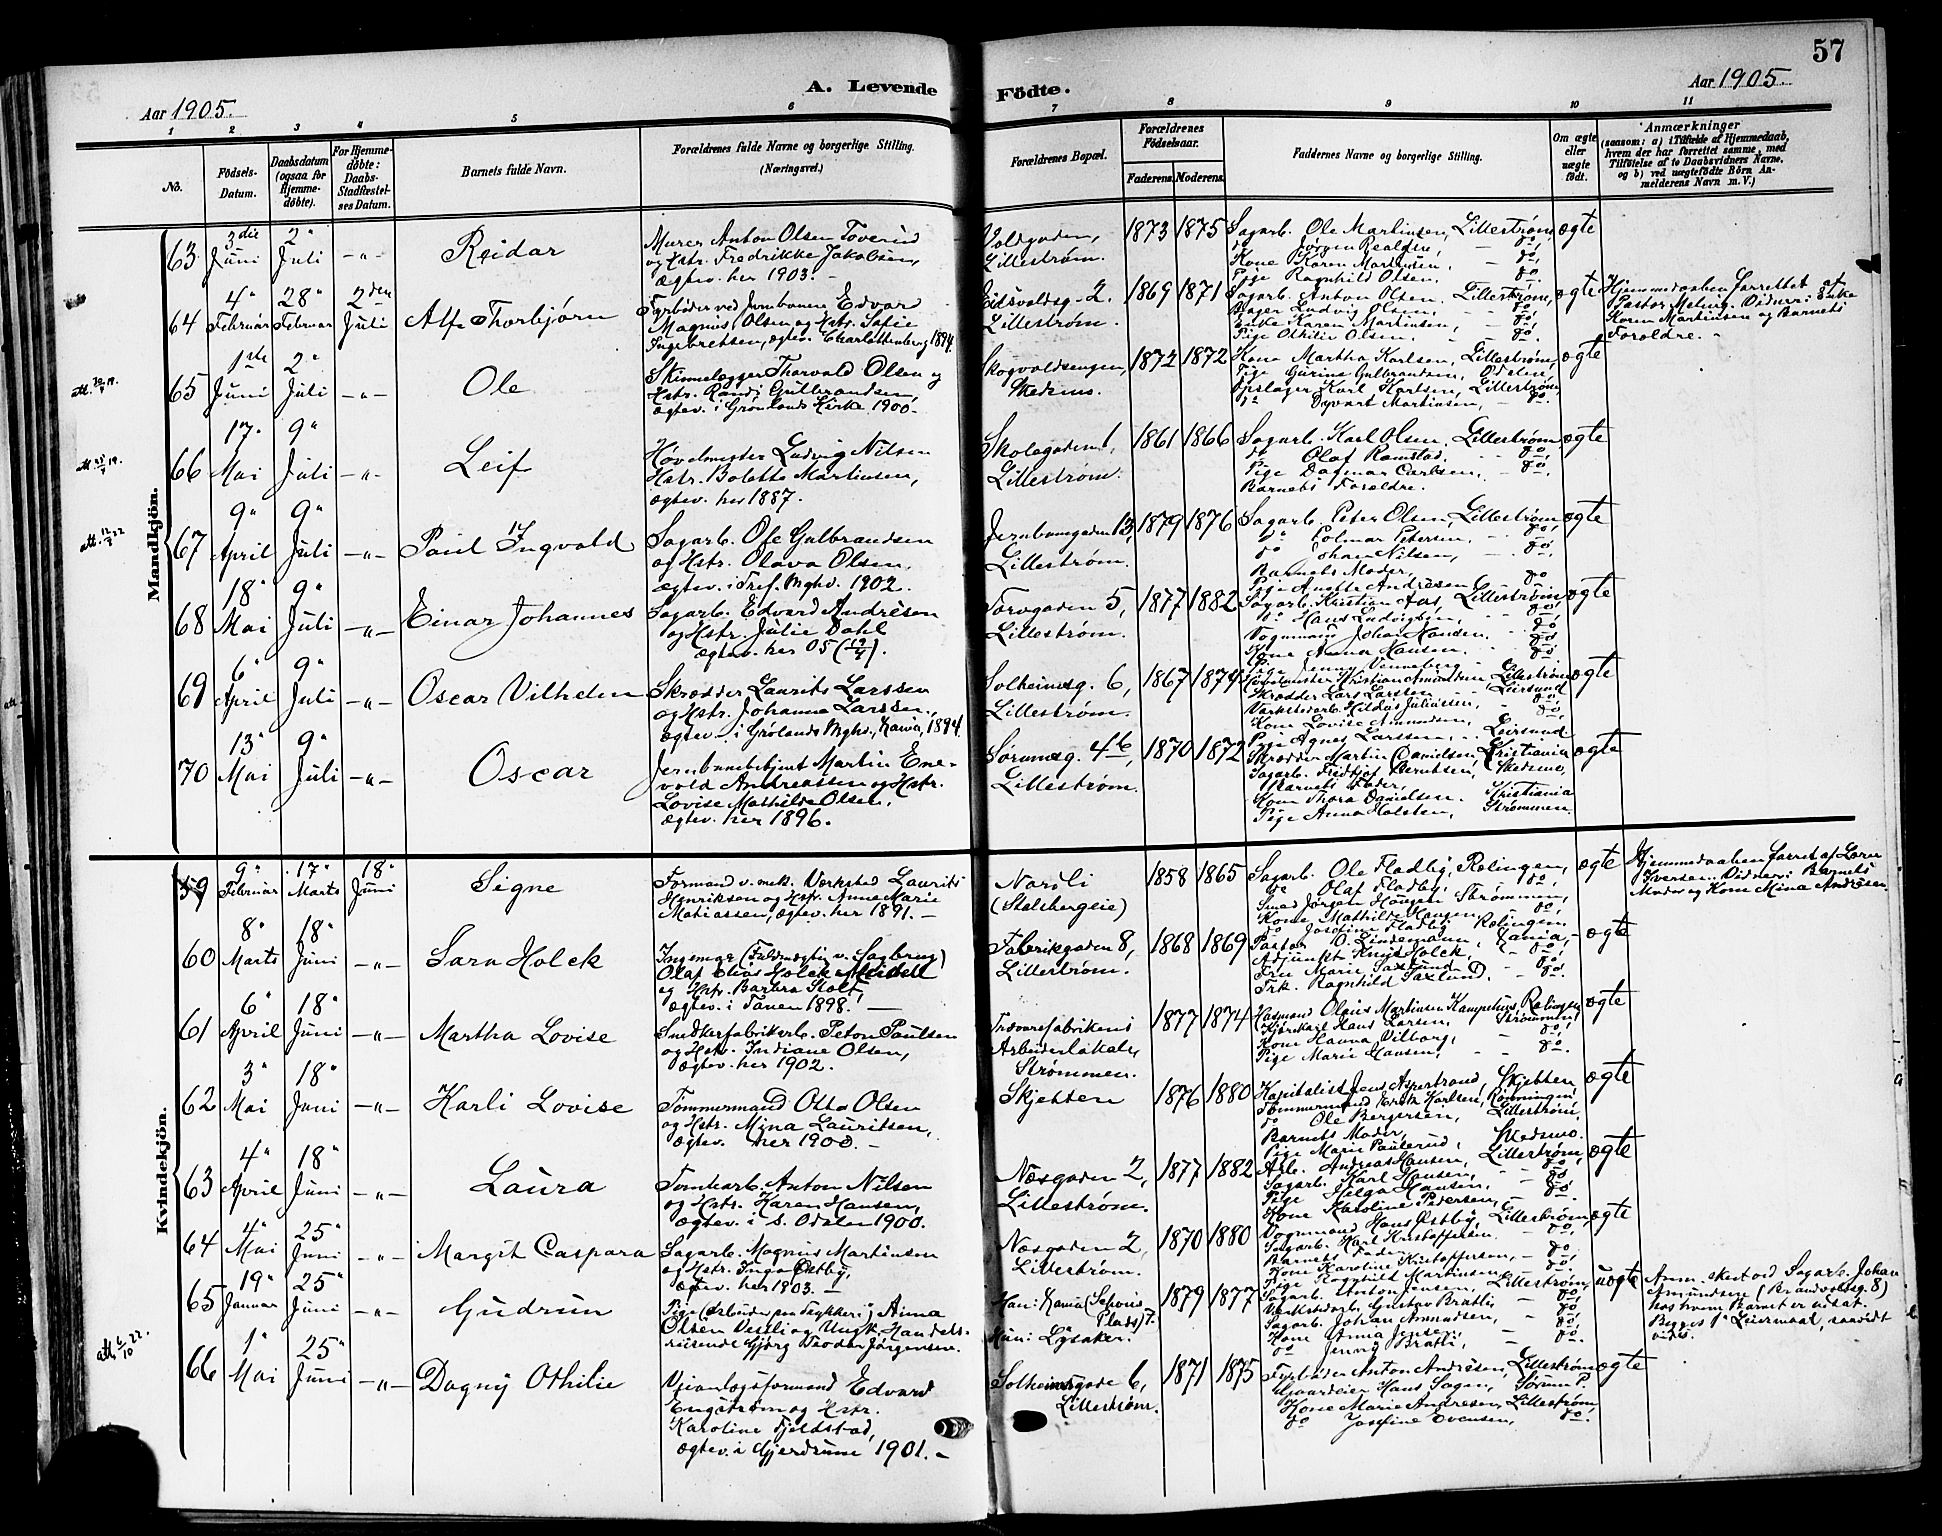 57
A. Levende Födte.
Aar 1905.
Aar 1905.
1 2 3 4 5 6 7 8 9 10 11
No.
Födsels-Datum.
Daabsdatum (ogsaa for Hjemme-döbte).
For Hjemme-döbte: Daabs-Stadfæstel-ses Datum.
Barnets fulde Navn.
Forældrenes fulde Navne og borgerlige Stilling. (Næringsvei.)
Forældrenes Bopæl.
Forældrenes Födselsaar.
Faderens. Moderens.
Faddernes Navne og borgerlige Stilling.
Om ægte eller uægte født.
Anmærkninger
(saasom: a) i Tilfælde af Hjemmedaab,
hvem der har forrettet samme, med
Tilföielse af to Daabsvidners Navne,
og b) ved uægtefödte Börn An-
melderens Navn m. V.)
Mandkjön.
63 3die Juni 2" Juli -"- Reidar
Murer Anton Olsen Toverud
og Hstr. Fredrikke Jakobsen,
ægtev. her 1903. -
Voldgaden, Lillestrøm. 1873 1875
Sagarb. Ole Martinsen, Lillestrøm, ægte
Kone Karen Martinsen, - do,
Pige Ragnhild Olsen, do.
64 4" Februar 28" Februar 2den Juli Alf Thorbjørn
Fyrbøder ved Jernbanen Edvard
Magnus Olsen og Hstr. Sofie
Ingebretsen, ægtev. Charlottenberg 1894.
Eidsvoldsg. 2. Lillestrøm. 1869 1871
Sagarb. Anton Olsen, Lillestrøm, ægte
Bager Ludvig Olsen, do,
Enke Karen Martinsen, - do,
Pige Othilie Olsen. do.
Hjemmedaaben forrettet af
Pastor Meling. Vidner: Enke
Karen Martinsen og Barnets
Forældre. -
65 1ste Juni 2" Juli -"- Ole
Skinnelægger Thorvald Olsen og
Hstr. Randi Gulbrandsen,
ægtev. i Grønlands Kirke 1900.
Skogvoldsengen, Skedsmo. 1872 1872
Kone Martha Karlsen, Lillestrøm, ægte
Pige Gurine Gulbrandsen, Odalen,
Opslager Karl Karlsen, Lillestrøm,
do Martinsen, - do.
66 17" Mai 9" Juli -"- Leif
Høvelmester Ludvig Nilsen
Hstr. Bolette Martinsen,
ægtev. her 1887.
Skolegaden 1, Lillestrøm. 1861 1866
Sagarb. Karl Olsen, Lillestrøm, ægte
do Olaf Ramstad, do,
Pige Dagmar Carlsen, - do,
Barnets Forældre.
67 9" April 9" Juli -"- Paul Ingvald
Sagarb. Ole Gulbrandsen
og Hstr. Olava Olsen,
ægtev. i Tref. Mghd. 1902.
Jernbanegaden 13, Lillestrøm. 1879 1876
Sagarb. Peter Olsen, Lillestrøm, ægte
do Petersen, do,
do Johan Nilsen, - do,
Barnets Moder,
Pige Andrèsen do
68 18" Mai 9" Juli -"- Einar Johannes
Sagarb. Edvard Andrèsen
og Hstr. Julie Dahl
ægtev. her 05
Torvgaden 5, Lillestrøm. 1877 1882
Sagarb. Kristian Aas, Lillestrøm, ægte
do Hans Ludvigsen, do,
Vognmand Johan Hansen, do
Kone Anna Hansen, do
Pige Jenny Venneberg
69 6" April 9" Juli -"- Oscar Vilhelm
Skrædder Laurits Larssen
og Hstr. Johanne Larssen,
ægtev. i Grølands Mghd., Xania, 1894.
Solheimsg. 6, Lillestrøm. 1867 1879
Kristian Amundsen Lillestrøm, ægte
Skrædder Lars Larssen Leirsund
Værkstedarb. Juliussen, do,
Kone Lovise Amundsen, do,
Pige Agnes Larssen, Leirsund
70 13" Mai 9" Juli -"- Oscar
Jernbanebetjent Martin Ene-
vold Andreassen og Hstr.
Lovise Mathilde Olsen,
ægtev. her 1896.
Sørumsg. 4b, Lillestrøm. 1870 1872
Skrædder Martin Danielsen, Kristiania ægte
Sagarb. Fredtjof Berntsen, Skedsmo,
Barnets Fader,
Kone Thora Danielsen. Kristiania
Pige Anna Holsten, Strømmen.
Kvindekjön.
59 9" Februar 17" Marts 18" Juni Signe
Formand v. mek. Værksted Laurits
Henriksen og Hstr. Anne Marie
Matiassen, ægtev. her 1891. -
Naroli (Stalsbergeie) 1858 1865
Sagarb. Ole Fladby, Rælingen, ægte
do Olaf Fladby, do,
Smed Jørgen Haugen Strømmen,
Kone Mathilde Haugen, do,
do Josefine Fladby Rælingen.
Hjemmedaaben forret. af Lærer
Iversen. Vidner: Barnets
Moder og Kone Mina Andrèsen.
60 8" Marts 18" Juni -"- Sara Holck
Ingeniør (Fuldmægtig v. Sagbrug)
Olaf Elias Holck Meidell
og Hstr. Barbra Stolt,
ægtev. i Tanen 1898. -
Fabrikgaden 8, Lillestrøm. 1868 1869
Pastor O. Lindemann, Xania, - ægte
Adjunkt Knud Holck, do
Fru Marie Saxlund - do,
Frk. Ragnhild Saxlund. do.
61 6" April 18" Juni -"- Martha Lovise
Snedkerfabrikarb. Peton Paulsen
og Hstr. Indiane Olsen,
ægtev. her 1902.
Trævarefabrikens Arbeiderlokale, Strømmen. 1877 1874
Husmand Olaus Martinsen Kampehus, Rælingen, ægte
Kjørekarl Hans Larsen, Strømmen,
Kone Hanna Vilborg, - do,
Pige Marie Hansen, - do.
62 3" Mai 18" Juni -"- Karli Lovise
Tømmermand Otto Olsen
og Hstr. Mina Lauritsen,
ægtev. her 1900. -
Skjetten 1876 1880
Kapitalist Jens Asperstrand, Skjetten, ægte
Tømmermand Karlsen,
do Ole Bergersen, Lillestrøm,
Barnets Moder,
Pige Marie Paulerud, Skedsmo.
63 4" April 18" Juni -"- Laura
Tomtearb. Anton Nilsen
og Hstr. Karen Hansen,
ægtev. i s. Odalen 1900.
Næsgaden 2, Lillestrøm. 1877 1882
Arb. Andreas Hansen, Lillestrøm, ægte
Sagarb. Karl Hansen, do
Pige Helga Hansen, - do
Kone Karoline Pedersen,
64 4" Mai 25" Juni -"- Margit Caspara
Sagarb. Magnus Martinsen
og Hstr. Inga Østby,
ægtev. her 1903. -
Næsgaden 2, Lillestrøm. 1870 1880
Vognmand Hans Østby, Lillestrøm, ægte
Sagarb. Karl Kristoffersen. do
Barnets Fader
Kone Karoline Kristoffersen, - do,
Pige Ragnhild Martinsen - do,
65 19" Januar 25" Juni -"- Gudrun
Pige (Arbeider paa Trykkeri) Anna
Olsen Vestli og Ungk. Handels-
reisende Georg Teodor Jørgensen.
Han: Xania (Schous Plads) 7.
Hun: Lysaker. 1879 1877
Sagarb. Anton Jensen, Lillestrøm, uægte
Værkstedarb. Gustav Bratli, do
Sagarb. Johan Amundsen, do,
Kone Anna Jensen, do,
do Jenny Bratli, do.
Anm. skert ved Sagarb. Johan
Amundsen (Brandvoldsg. 8)
hos hvem Barnet er udsat.
Begges 1" Leiermaal, saavidt
vides.
66 1" Mai 25" Juni -"- Dagny Othilie
Veianlægsformand Edvard
Engstrøm og Hstr.
Karoline Fjeldstad,
ægtev. i Gjerdrum 1901. -
Solheimsgade 6, Lillestrøm. 1871 1875
Fyrbøder Anton Andrèsen, Lillestrøm, ægte
Gaardeier Hans Sagen, Sørum P.
Kone Marie Andresen, Lillestrøm,
do Josefine Evensen, do.